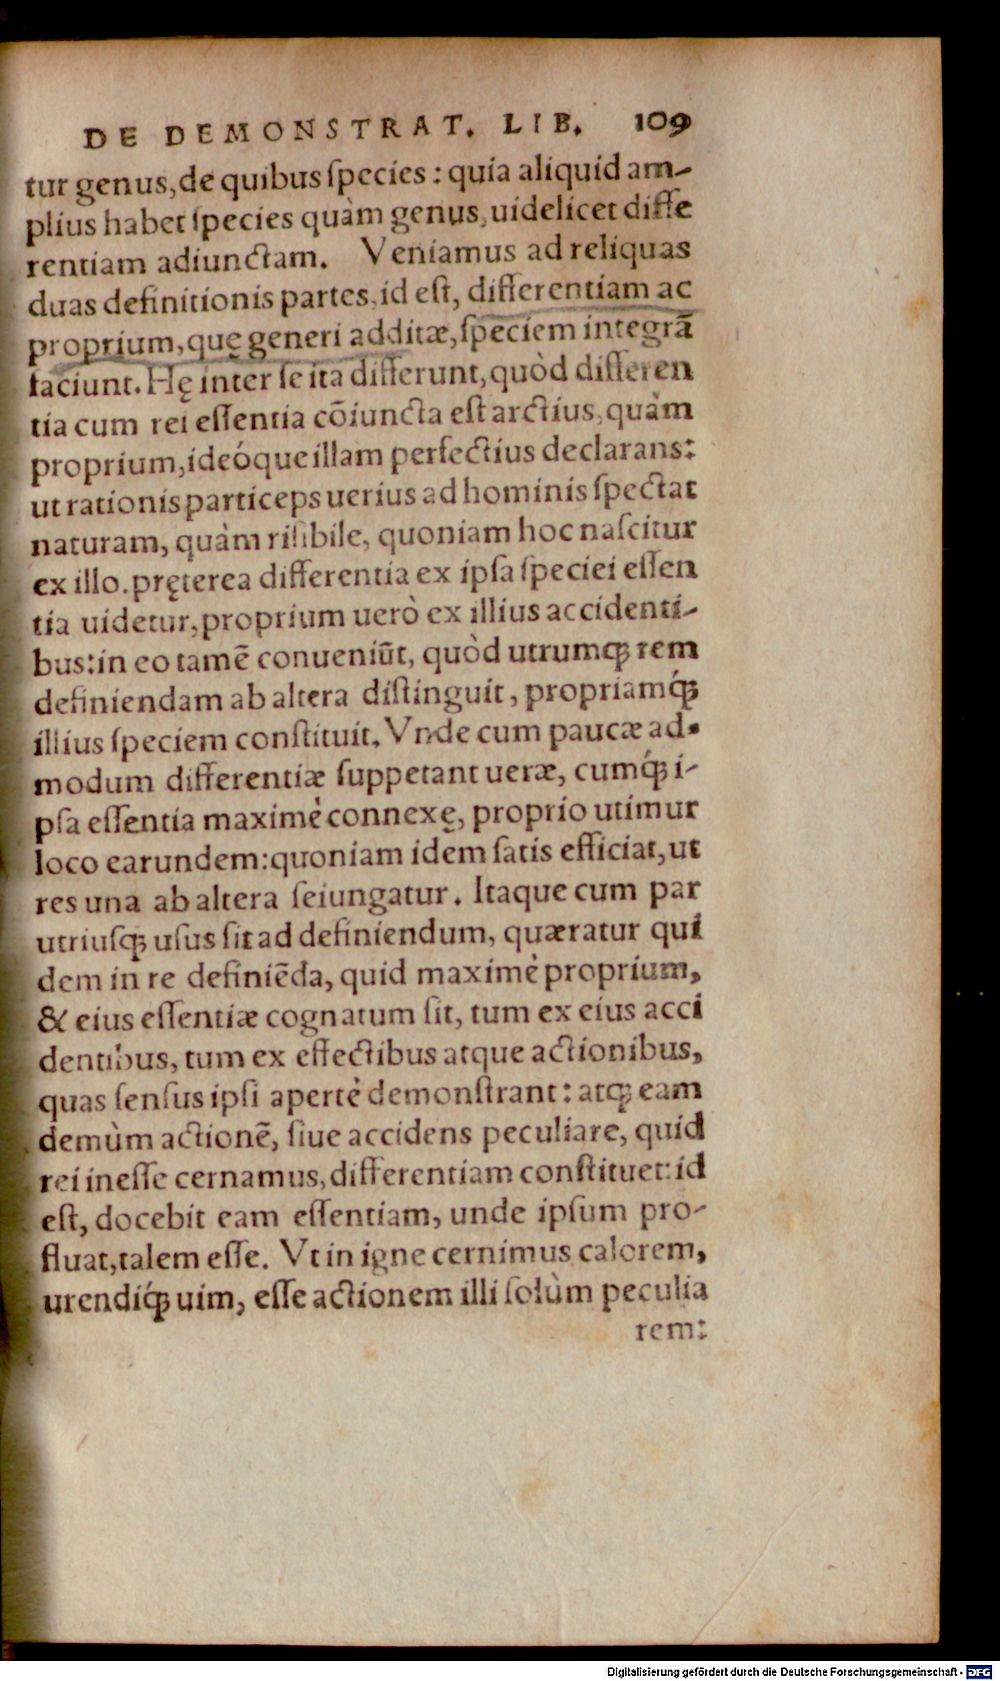 DE DEMONSTRAT. LIB. 109
tur genus, de quibus ſpecies: quia aliquid am-
plius habet ſpecies quàm genus, uidelicet diffe
rentiam adiunctam. Veniamus ad reliquas
duas definitionis partes, id eſt, differentiam ac
proprium, quę generi additæ, ſpeciem integrã
faciunt. Hę inter ſe ita differunt, quòd differen
tia cum rei eſſentia cõiuncta eſt arctius, quàm
proprium, ideóque illam perfectius declarans:
ut rationis particeps uerius ad hominis ſpectat
naturam, quàm riſibile, quoniam hoc naſcitur
ex illo. pręterea differentia ex ipſa ſpeciei eſſen
tia uidetur, proprium uerò ex illius accidenti-
bus: in eo tamẽ conueniũt, quòd utrumq; rem
definiendam ab altera diſtinguit, propriamq́;
illius ſpeciem conſtituit. Vnde cum paucæ ad-
modum differentiæ ſuppetant ueræ, cumq́; i-
pſa eſſentia maximè connexę, proprio utimur
loco earundem: quoniam idem ſatis efficiat, ut
res una ab altera ſeiungatur. Itaque cum par
utriuſq; uſus ſit ad definiendum, quæratur qui
dem in re definiẽda, quid maximè proprium,
& eius eſſentiæ cognatum ſit, tum ex eius acci
dentibus, tum ex effectibus atque actionibus,
quas ſenſus ipſi apertè demonſtrant: atq; eam
demùm actionẽ, ſiue accidens peculiare, quid
rei ineſſe cernamus, differentiam conſtituet: id
eſt, docebit eam eſſentiam, unde ipſum pro-
fluat, talem eſſe. Vt in igne cernimus calorem,
urendiq́; uim, eſſe actionem illi ſolùm peculia
rem:
Digitalisierung gefördert durch die Deutsche Forschungsgemeinschaft - DFG